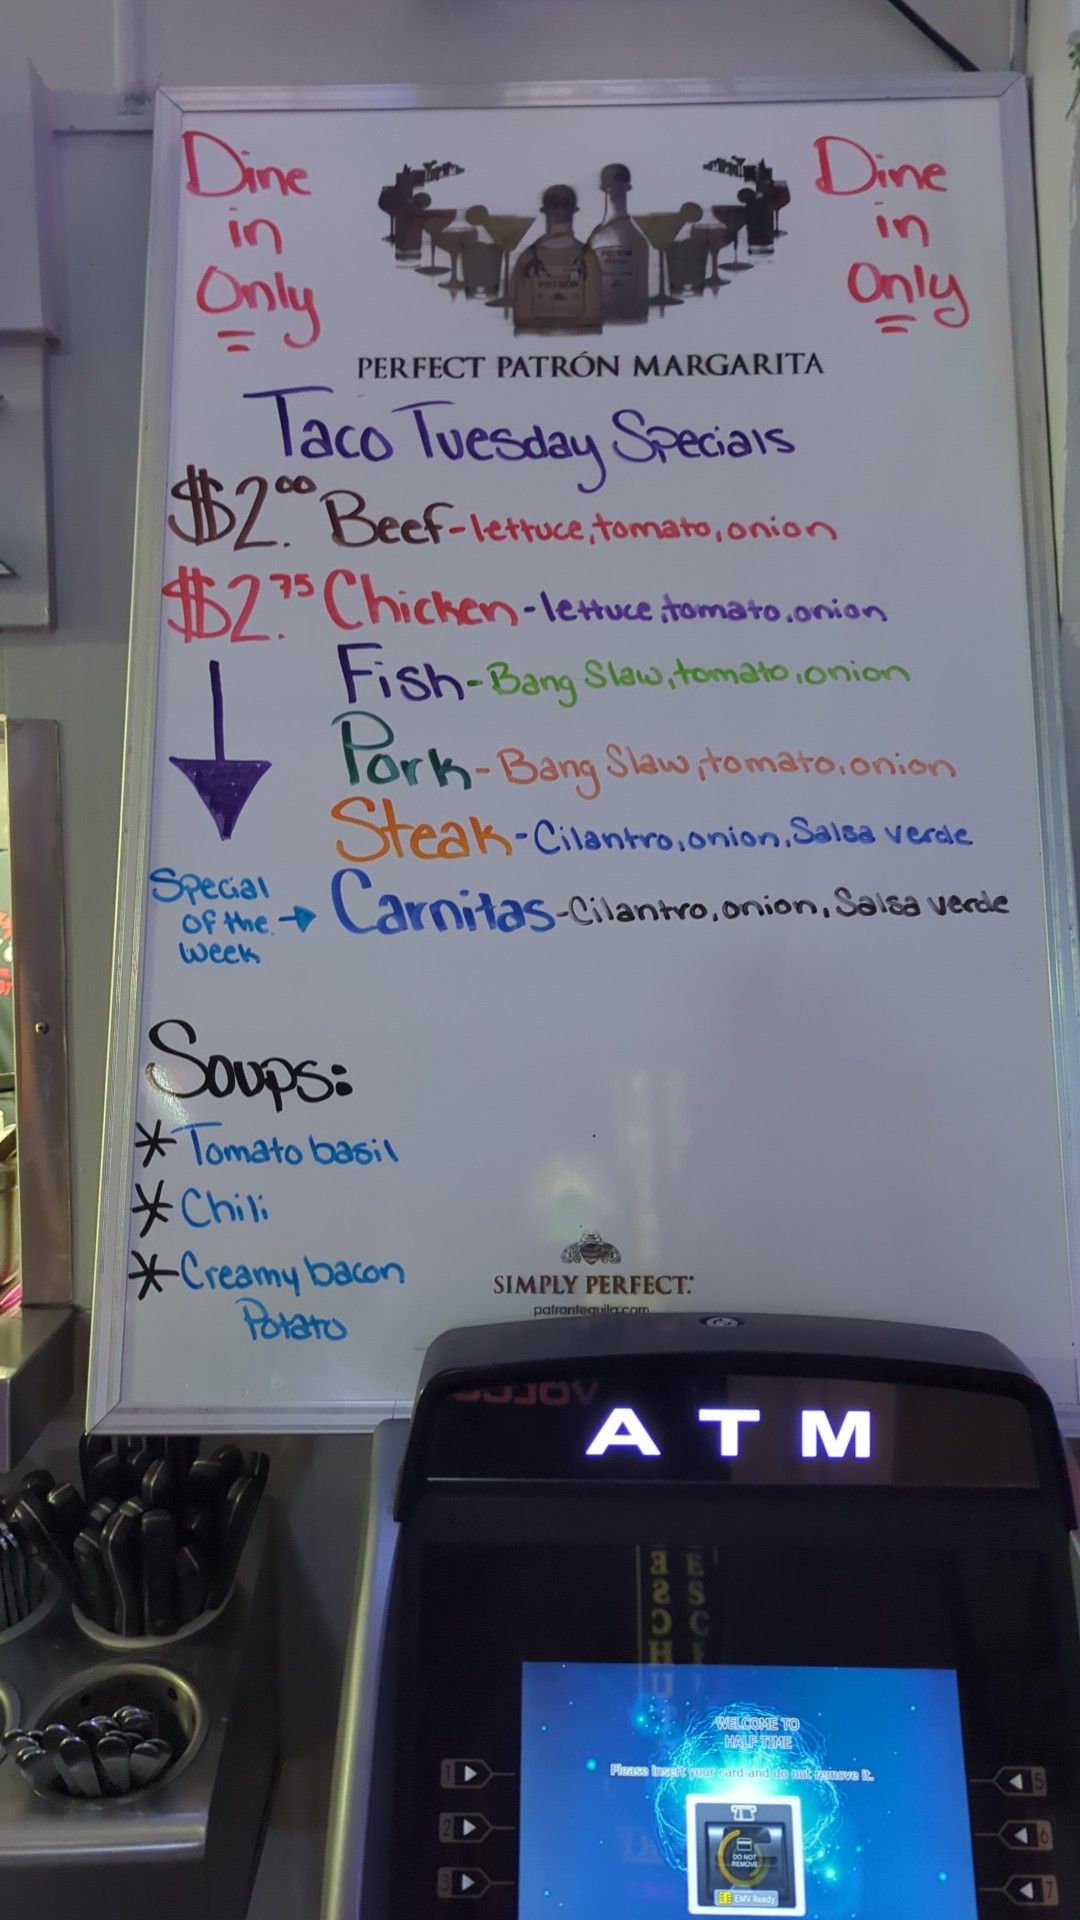 Dine
in
Only
Dine
in
Only
PATRÓN
PERFECT PATRÓN MARGARITA
Taco Tuesday Specials
$2.00 Beef-lettuce, tomato, onion
$2.75 Chicken-lettuce, tomato, onion
Fish-Bang Slaw, tomato, onion
Pork-Bang Slaw, tomato, onion
Steak-Cilantro, onion, Salsa verde
Special of the week → Carnitas-Cilantro, onion, Salsa verde
Soups:
* Tomato basil
* Chili
* Creamy bacon
Potato
SIMPLY PERFECT.
patrontequila.com
ATM
WELCOME TO
HALF TIME
Please insert your card and do not remove it.
DO NOT
REMOVE
EMV Ready
1
2
3
5
6
7